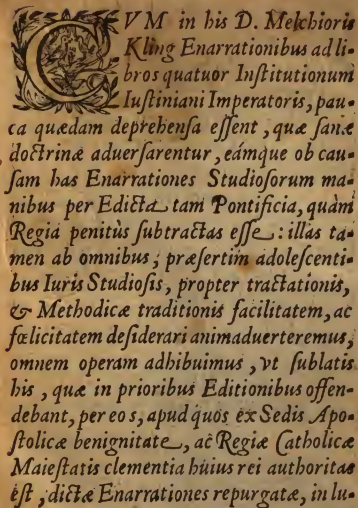 CVM in his D. Melchioris
Kling Enarrationibus ad li-
bros quatuor Institutionum
Iustiniani Imperatoris, pau-
ca quædam deprehensa essent, quæ sanæ
doctrinæ aduersarentur, eámque ob cau-
sam has Enarrationes Studiosorum ma-
nibus per Edicta tam Pontificia, quàm
Regia penitùs subtractas esse: illas ta-
men ab omnibus, præsertim adolescenti-
bus Iuris Studiosis, propter tractationis,
& Methodicæ traditionis facilitatem, ac
fœlicitatem desiderari animaduerteremus,
omnem operam adhibuimus, vt sublatis
his, quæ in prioribus Editionibus offen-
debant, per eos, apud quos ex Sedis Apo-
stolicæ benignitate, ac Regiæ Catholicæ
Maiestatis clementia huius rei authoritas
est, dictæ Enarrationes repurgatæ, in lu-